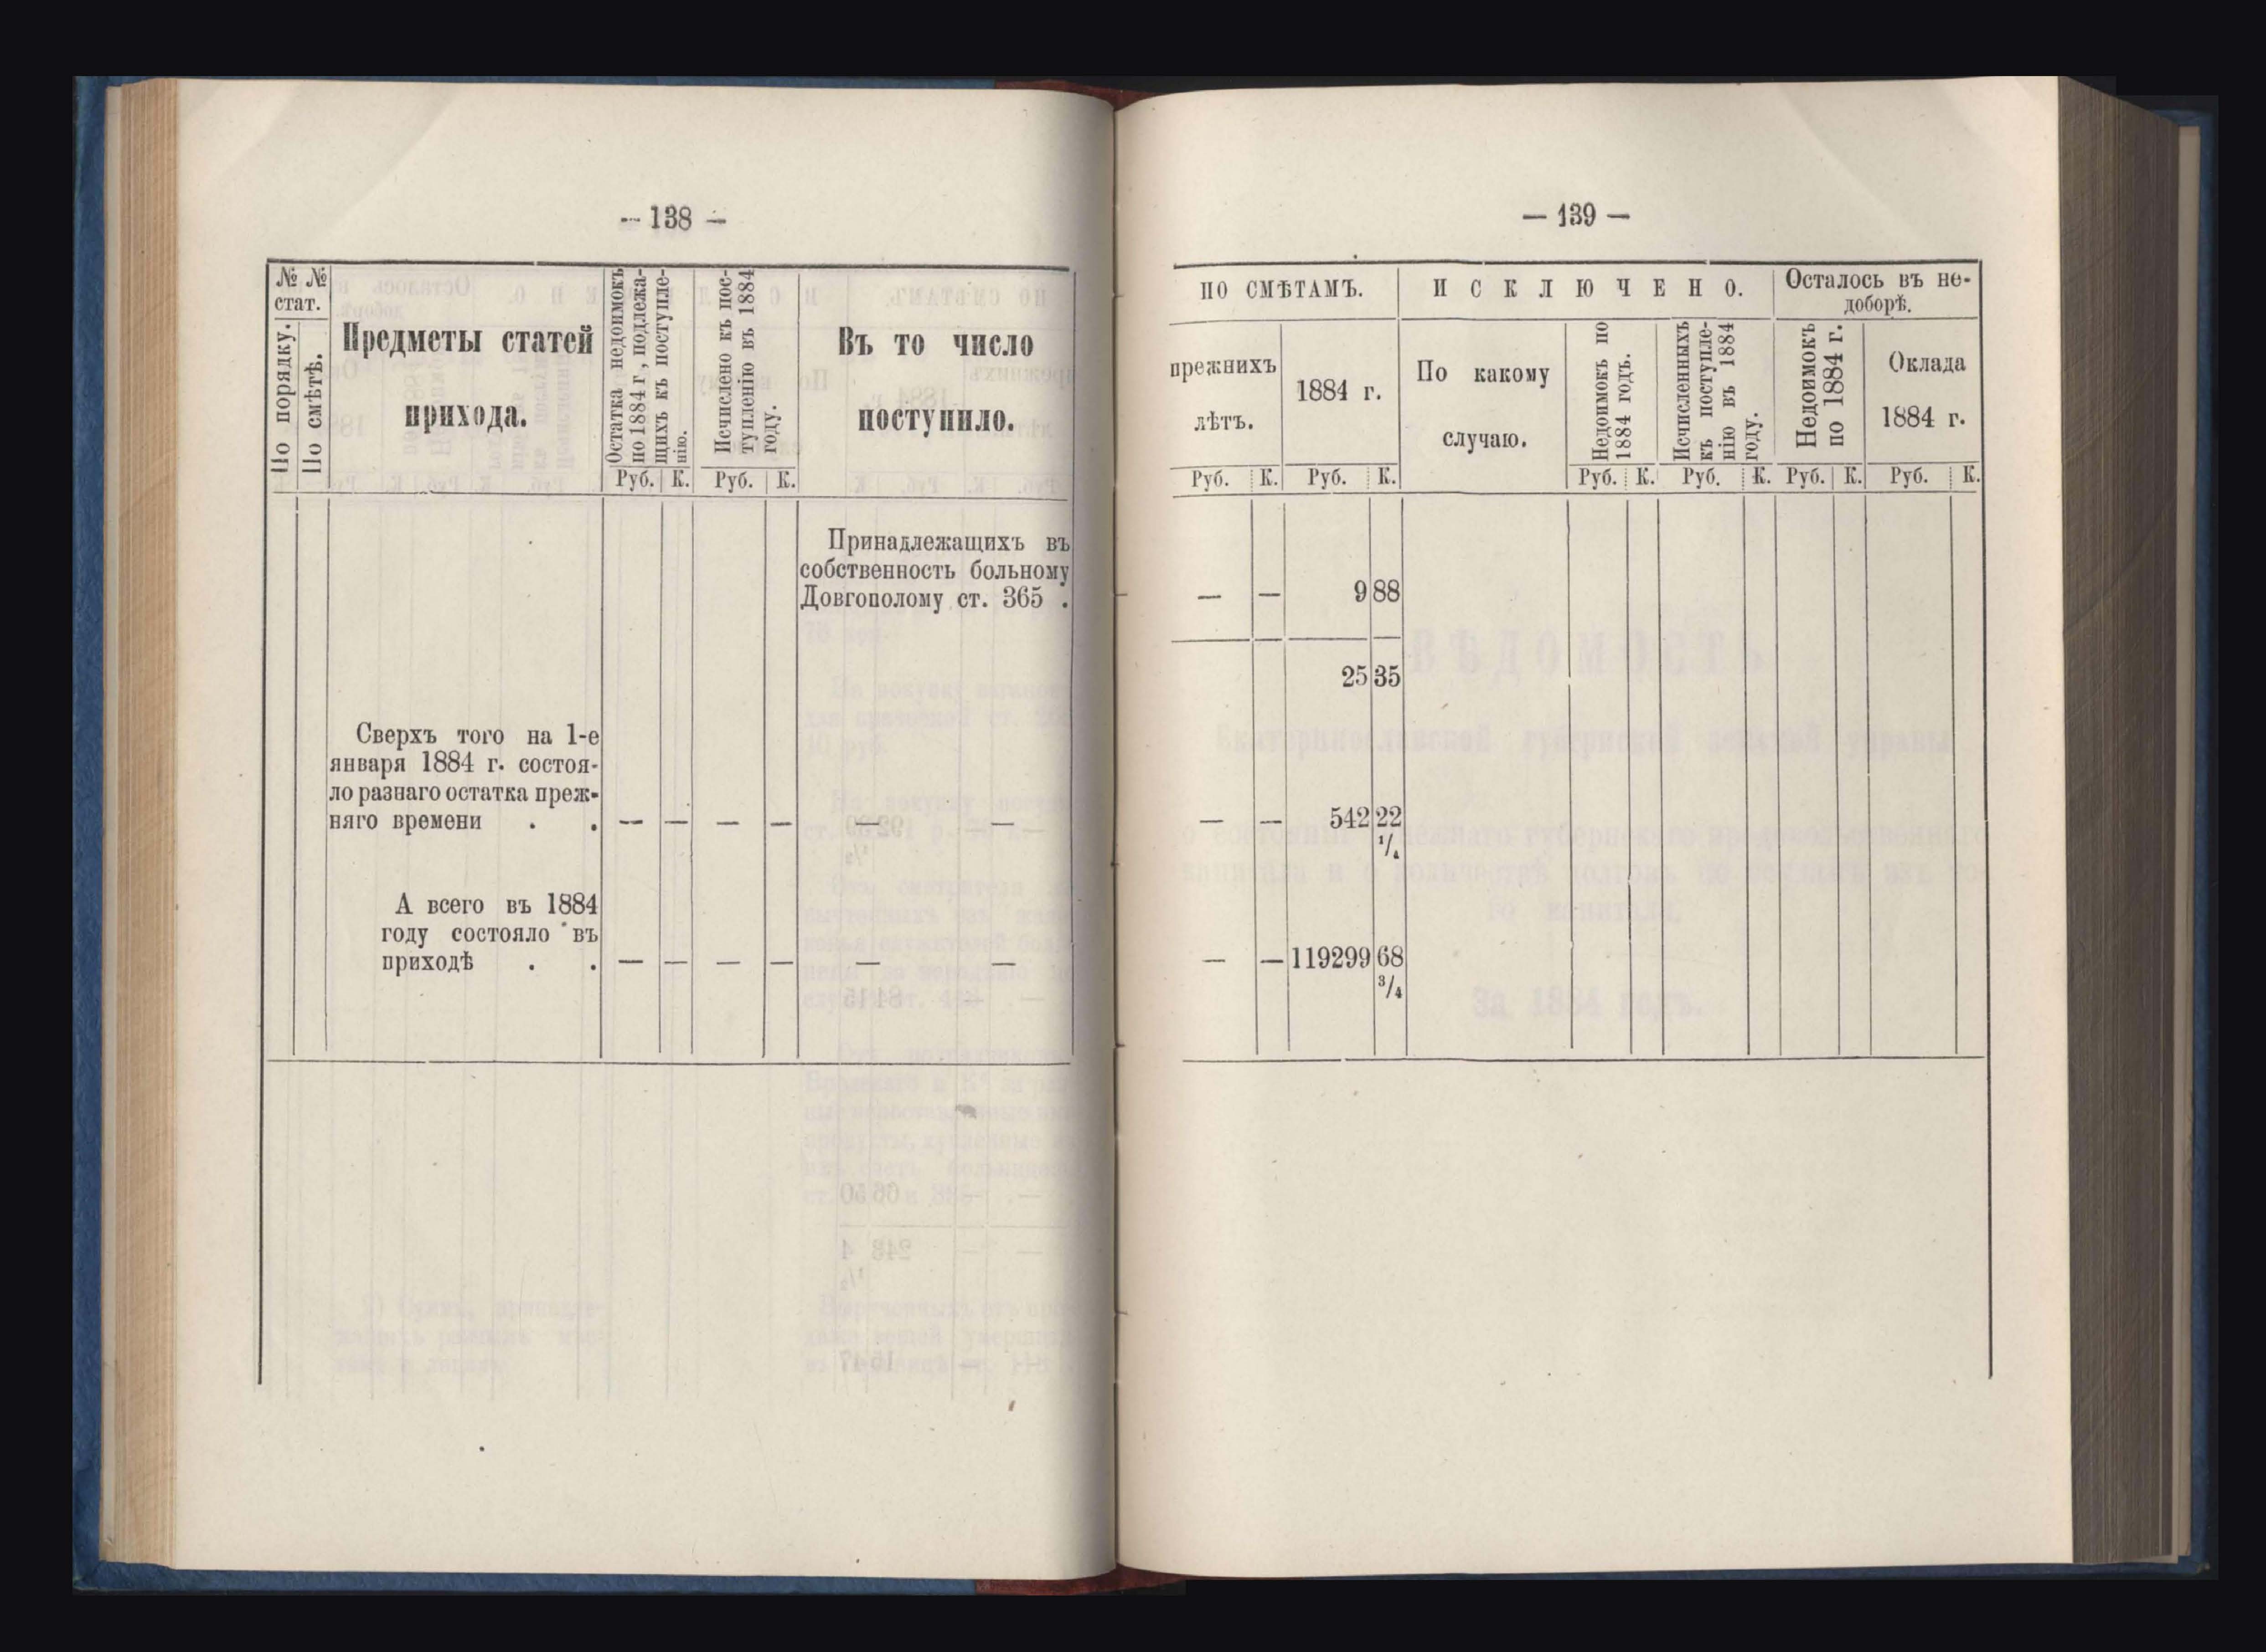 — 138 —
№ №
стат.
По порядку.
По смѣтѣ.
Предметы статей
прихода.
Остатка недоимокъ
по 1884 г, подлежа-
щихъ къ поступле-
нію.
Исчислено къ пос-
тупленію въ 1884
году.
Въ то число
поступило.
Руб. К. Руб. К.
Принадлежащихъ въ
собственность больному
Довгополому ст. 365 .
Сверхъ того на 1-е
января 1884 г. состоя-
ло разнаго остатка преж-
няго времени . . — — — — — —
А всего въ 1884
году состояло въ
приходѣ . . — — — — — —
— 139 —
ПО СМѢТАМЪ.
ИСКЛЮЧЕНО.
Осталось въ не-
доборѣ.
прежнихъ
лѣтъ.
1884 г.
По какому
случаю.
Недоимокъ по
1884 годъ.
Исчисленныхъ
къ поступле-
нію въ 1884
году.
Недоимокъ
по 1884 г.
Оклада
1884 г.
Руб. К. Руб. К. Руб. К. Руб. К. Руб. К. Руб. К.
— — 9 88
25 35
— — 542 22
1/4
— — 119299 68
3/4